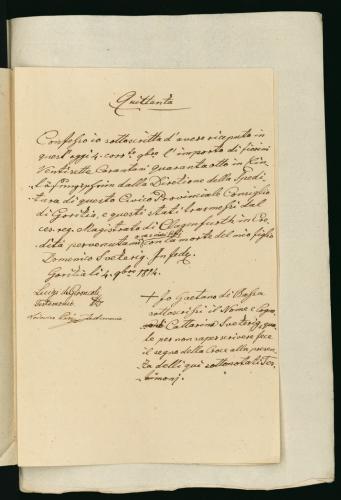 Quittanza
Confesso io sottoscritta d'avere ricevuto in
quest'oggi 4. corr.te 9bre l'importo di fiorini
Ventisette Carantani quaranta otto in
dalla Direzione della Spedi
tura di questo Civico Provinciale Consiglio
di Gorizia, e questi stati trasmessi dal
ces. reg. Magistrato di Clagenfurth in Ere
dità pervenutami con la morte del mio figlio
Domenico Sveterig. In fede.
Gorizia li 4. 9bre 1814.
Luigi
Testimonio
Testimonio
+ Io Gaetano di Bassa
sottoscrissi il Nome e Cogno
me di Cattarina Sveterig, qua
le per non saper scrivere fece
il segno della Croce alla presen
za delli quì sottonotati Tes
timonj.